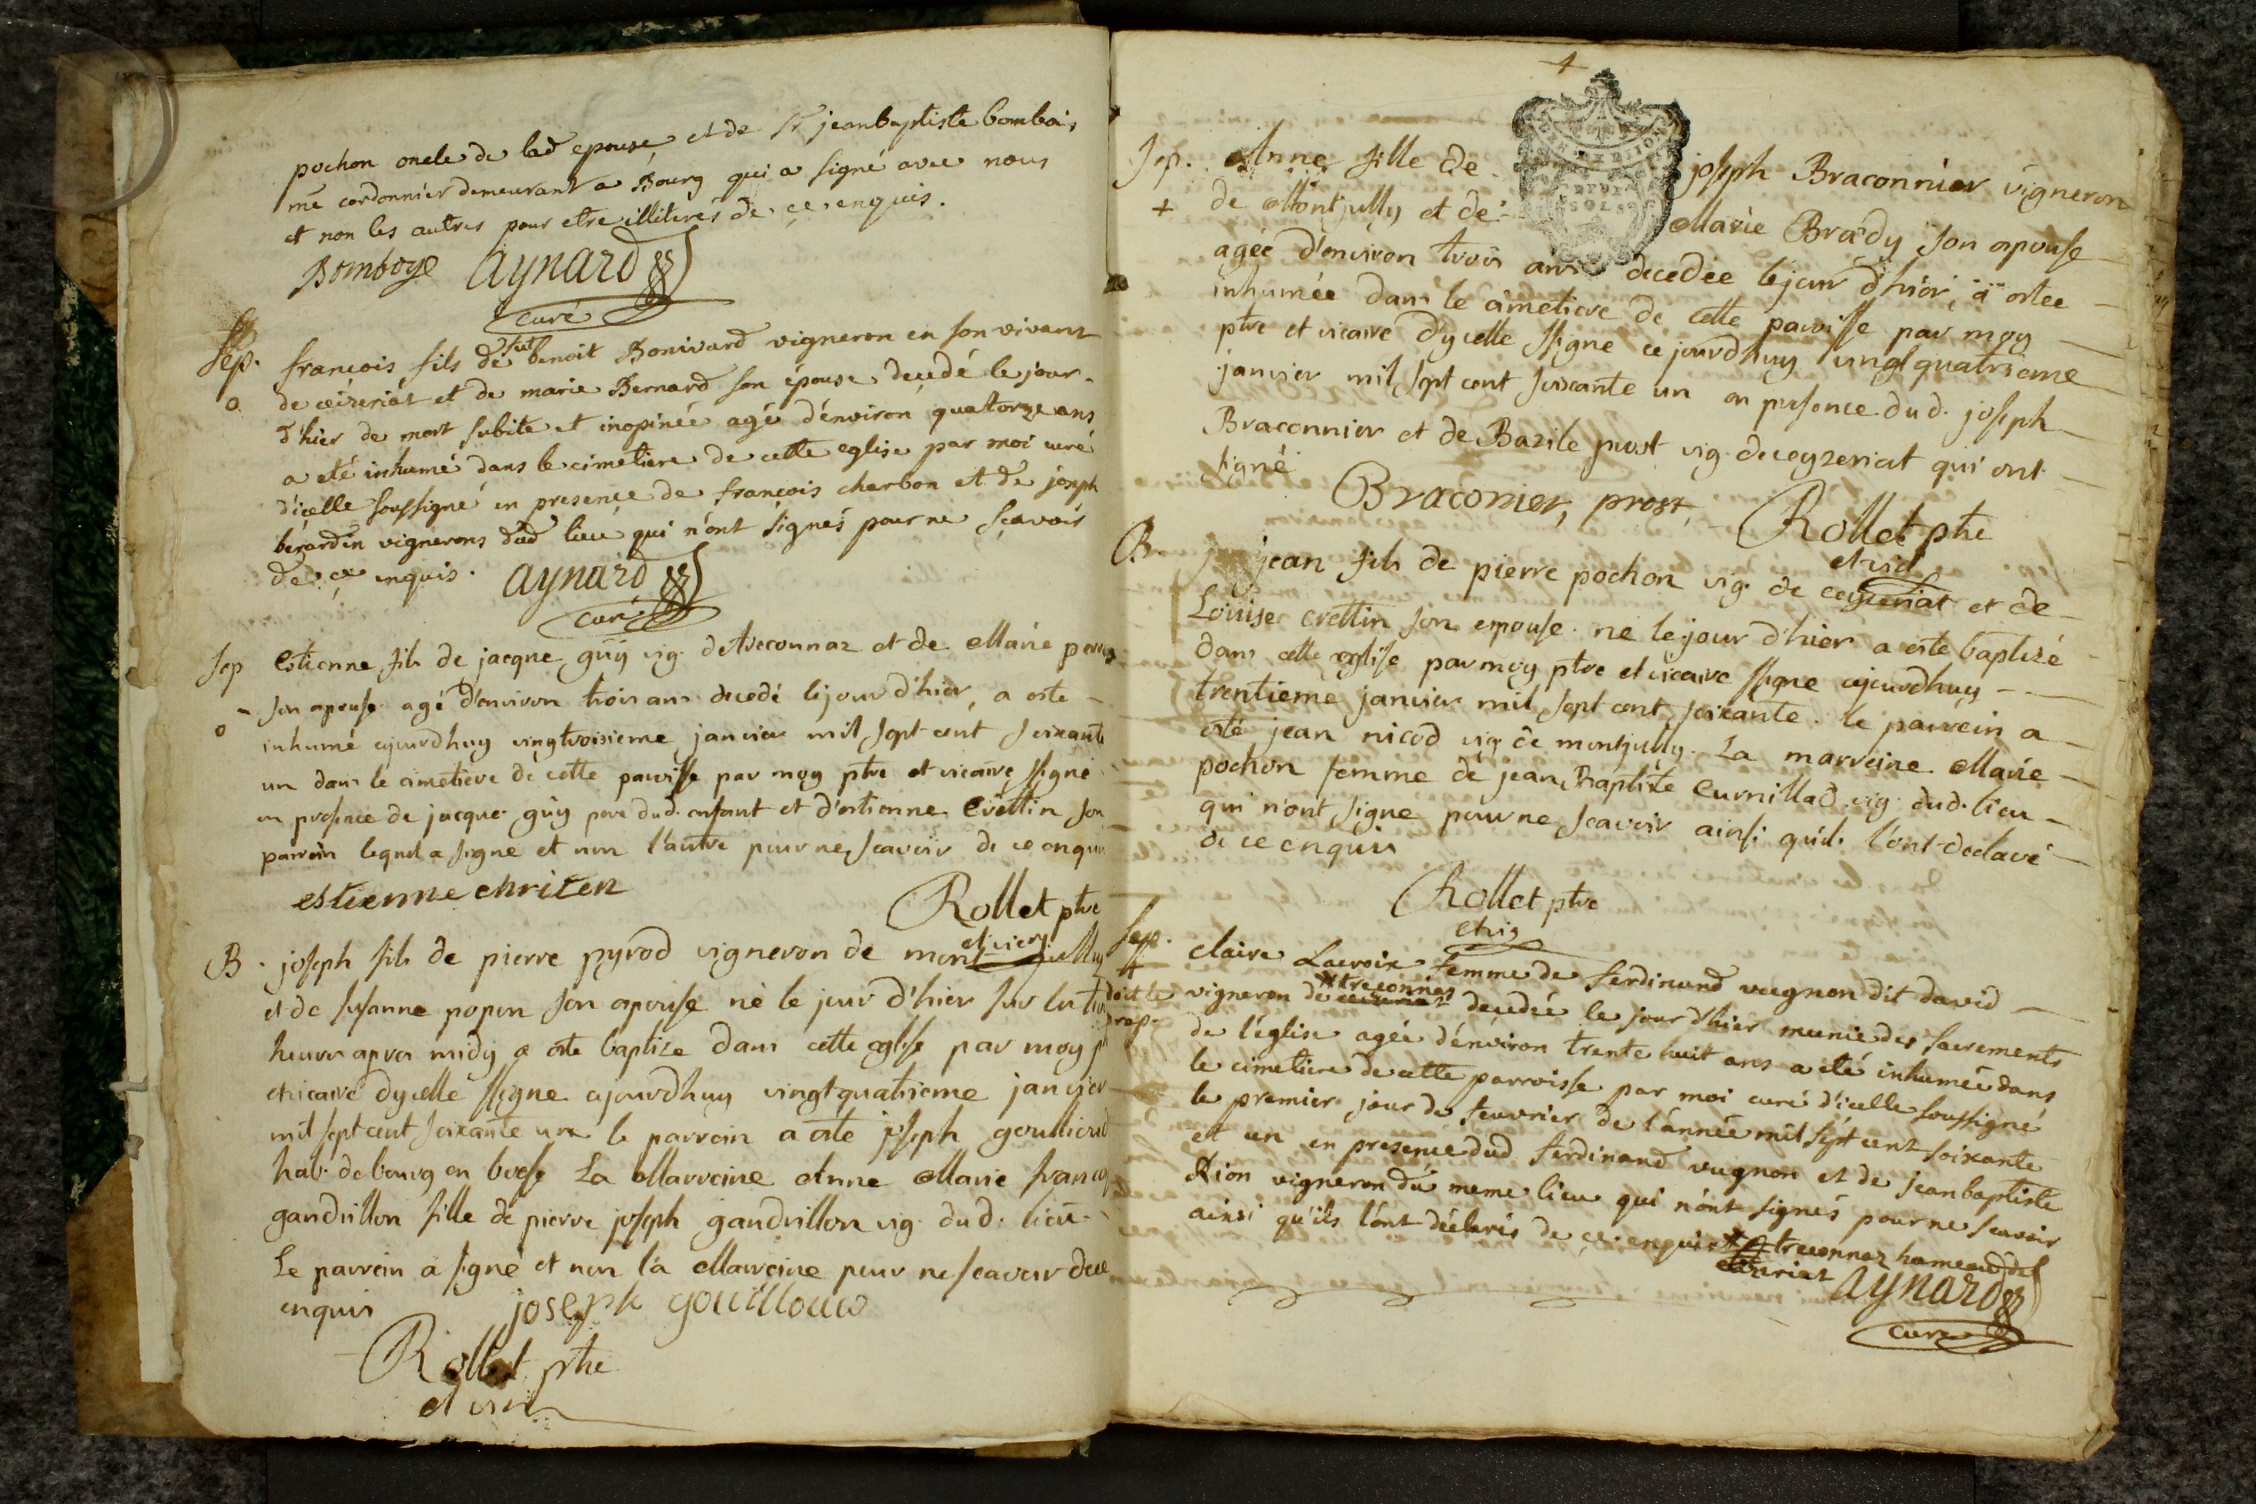 pochon oncle de lad epouse et de Sr jeanbaptiste bombois
me cordonnier demeurant a Bourg qui a signé avec nous
et non les autres pour etre illiterés de ce enquis.
Bomboye aynard
curé
Sep. françois fils de fut benoit Bonivard vigneron en son vivant
o de ceizeriat et de marie Bernard son épouse decedé le jour
d'hier de mort subite et inopinée agé d'environ quatorze ans
a eté inhumé dans le cimetiere de cette eglise par moi curé
d'icelle soussigné en presence de françois charbon et de joseph
berardin vignerons dud lieu qui n'ont signés pour ne sçavoir
de ce enquis. aynard
curé
Sep estienne fils de jacque guy vig. de treconnaz et de Marie
o son epouse agé d'environ trois ans decedé lejour d'hier, a esté
inhumé cejourdhuy vingtroisieme janvier mil sept cent soixante
un dans le cimetiere de cette paroisse par moy ptre et vicaire ssigné
en presence de jacque guy pere dud. enfant et d'estienne Crettin son
parrein lequel a signé et non l'autre pour ne scavoir de ce enquis
estienne chriten
Rollet ptre
et vicr.
B. joseph fils de pierre pyrod vigneron de montjully
et de susanne popon son epouse né le jour d'hier sur les
heures apres midy a esté baptizé dans cette eglise par moy
et vicaire dycelle ssigné cejourdhuy vingtquatrieme janvier
mil sept cent soixante un le parrein a esté joseph goullioud
hab. de bourg en bresse La Marreine Anne Marie
gandrillon fille de pierre joseph gandrillon vig. dud. lieu.
Le parrein a signé et non la Marreine pour ne scavoir de ce
enquis joseph gouilloud
Rollet ptre
et vic
+
Sep. Anne fille de joseph Braconnier vigneron
+ de Montjully et de Marie Brady son epouse
agée d'environ trois ans decedée lejour d'hier, a estee
inhumée dans le cimetiere de cette paroisse par moy
ptre et vicaire dycelle ssigné ce jourdhuy vingt quatrieme
janvier mil sept cent soixante un en presence dud. joseph
Braconnier et de Bazile prost vig. de ceyzeriat qui ont
signé
Braconier, prost, Rollet ptre
et vic
B. jean fils de pierre pochon vig. de ceyzeriat et de
Louise crettin son epouse. né lejour d'hier a esté baptizé
dans cette eglise par moy ptre et vicaire ssigné cejourdhuy
trentieme janvier mil sept cent soixante. le parrein a
esté jean nicod vig. de montjully. La marreine Marie
pochon femme de jean Baptiste Curnillad vig. dud. lieu
qui n'ont signé pour ne scavoir ainsi quils l'ont declaré
de ce enquis
Rollet ptre
et vic
Sep. claire Lacroix femme de ferdinand vugnon dit david
+ vigneron de treconnas ceizeriat decedée le jour d'hier munie des sacrements
doit le
de l'église agée d'environ trente huit ans a eté inhumée dans
le cimetiere de cette parroisse par moi curé d'icelle soussigné
le premier jour de feuvrier de l'année mil sept cent soixante
et un en presence dud ferdinand vugnon et de jeanbaptiste
vigneron du meme lieu qui n'ont signés pour ne scavoir
ainsi qu'ils l'ont déclarés de ce enquis treconnaz hameau de
ceizeriat aynard
curé